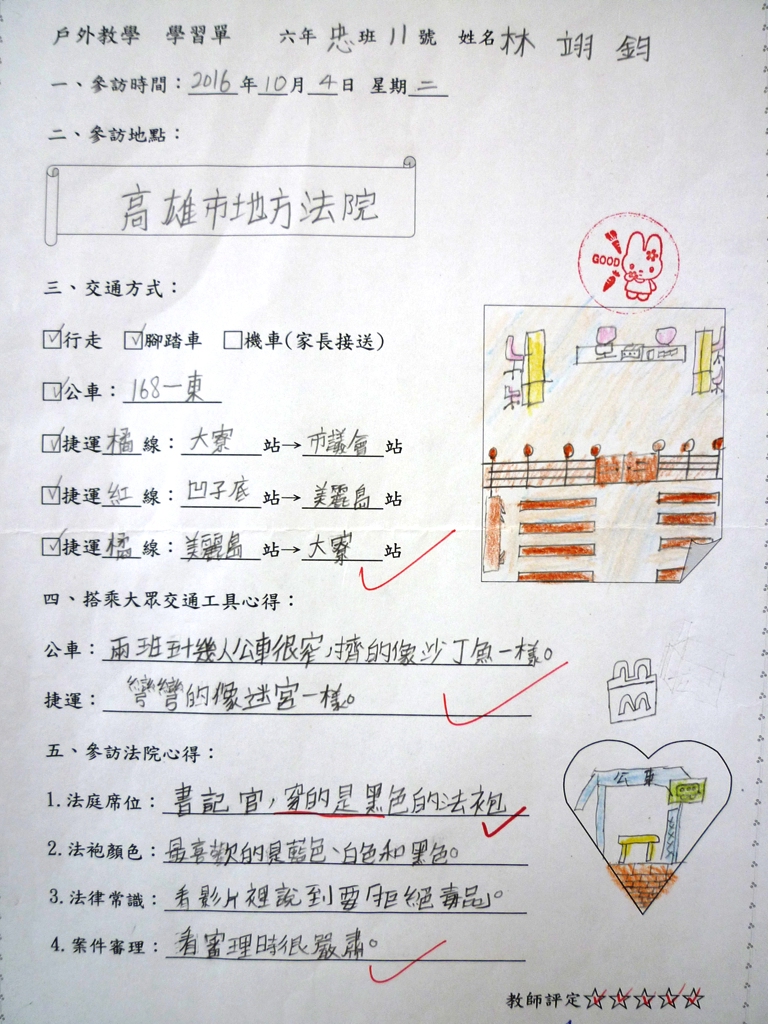 戶外教學 學習單 六年忠班11號 姓名林翊鈞
一、參訪時間：2016年10月4日 星期二
二、參訪地點：
高雄市地方法院
GOOD
三、交通方式：
☑行走 ☑腳踏車 □機車(家長接送)
☑公車：168一東
☑捷運橘線：大寮站→市議會站
☑捷運紅線：凹子底站→美麗島站
☑捷運橘線：美麗島站→大寮站
四、搭乘大眾交通工具心得：
公車：兩班五十幾人公車很窄，擠的像沙丁魚一樣。
捷運：彎彎的像迷宮一樣。
五、參訪法院心得：
公車
1.法庭席位：書記官，穿的是黑色的法袍
2.法袍顏色：最喜歡的是藍色、白色和黑色。
3.法律常識：看影片裡說到要「拒絕毒品」。
4.案件審理：看審理時很嚴肅。
教師評定☆☆☆☆☆